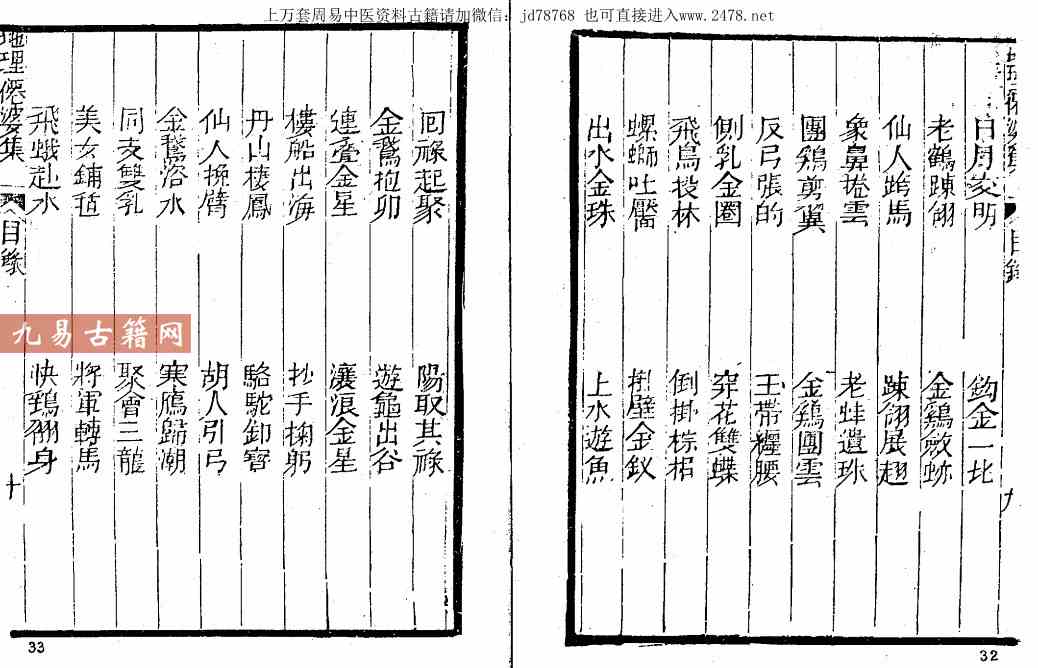 上万套周易中医资料古籍请加微信：jd78768 也可直接进入www.2478.net
目錄
九
日月交明
鈎金一比
老鶴踈翎
金鷄斂跡
仙人跨馬
踈翎展翅
象鼻捲雲
老蚌遺珠
團鷄剪翼
金鷄團雲
反弓張的
玉帶纒腰
側乳金圈
穿花雙蝶
飛鳥投林
倒掛棕梠
螺螄吐靨
掛壁金釵
出水金珠
上水遊魚
32
回祿起聚
陽取其祿
金鵞抱卯
遊龜出谷
連疊金星
瀼浪金星
樓船出海
抄手掬躬
丹山棲鳳
駱駝卸寶
仙人挽臂
胡人引弓
金鵞浴水
寒鴈歸潮
同支雙乳
聚會三龍
美女鋪毡
將軍轉馬
飛蛾赴水
快鷂翻身
地理僊婆集
目錄
十
33
九易古籍网